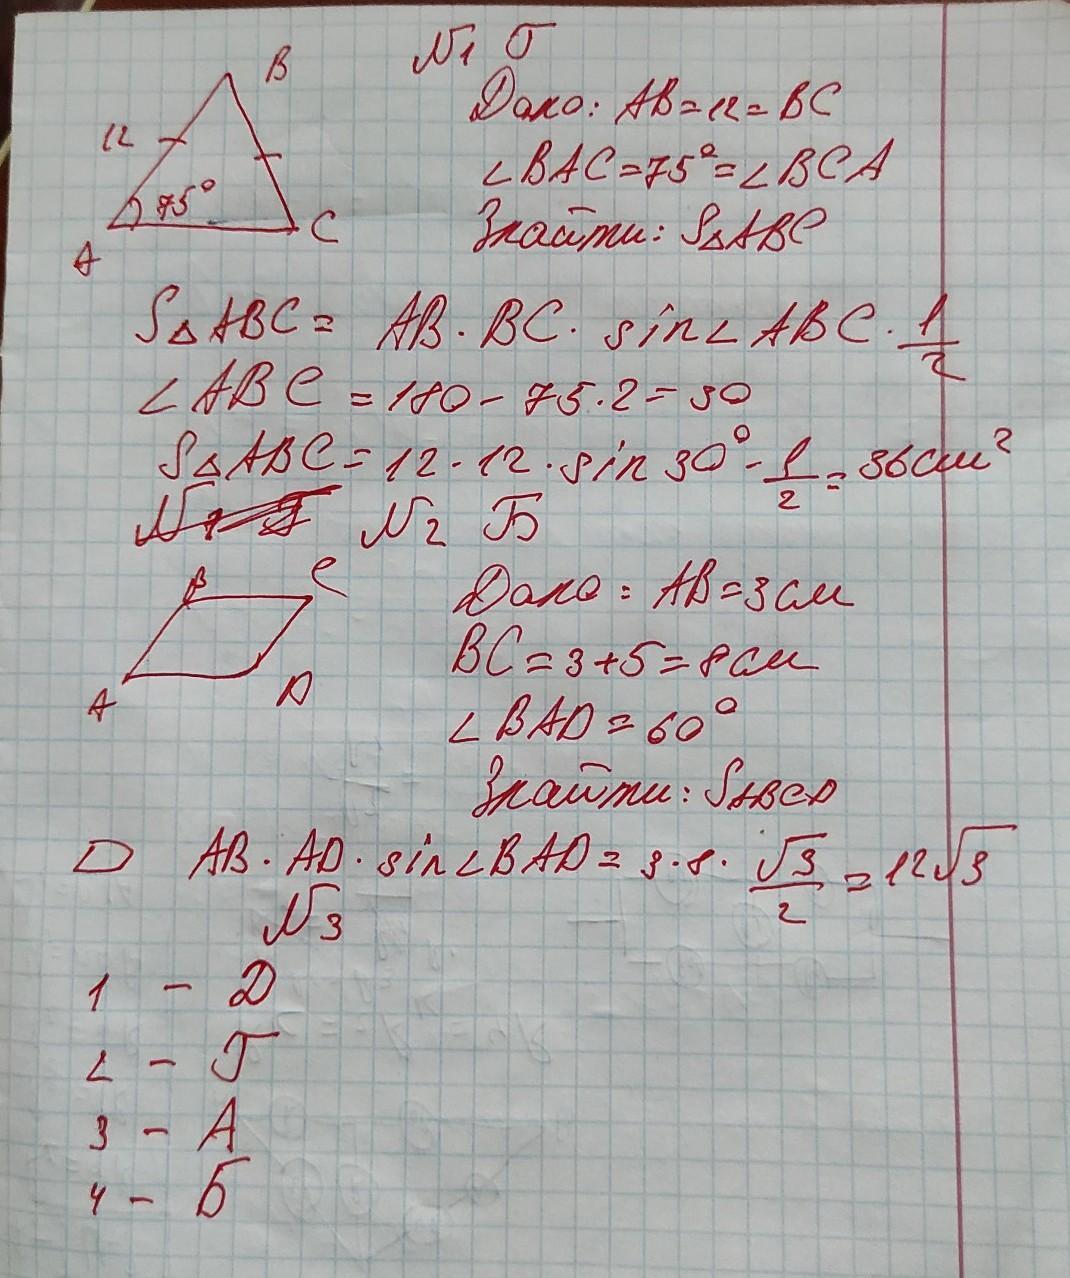 N1 Г
B
12
75°
A
C
Дано: AB=12=BC
∠BAC=75°=∠BCA
Знайти: S△ABC
S△ABC= AB·BC· sin∠ABC·1/2
∠ABC=180-75·2=30
S△ABC=12·12·sin30°·1/2=36см²
N2 Б
B
C
A
D
Дано: AB=3см
BC=3+5=8см
∠BAD=60°
Знайти: SABCD
AB·AD·sin∠BAD=3·8·√3/2=12√3
N3
1 - Д
2 - Г
3 - А
4 - Б